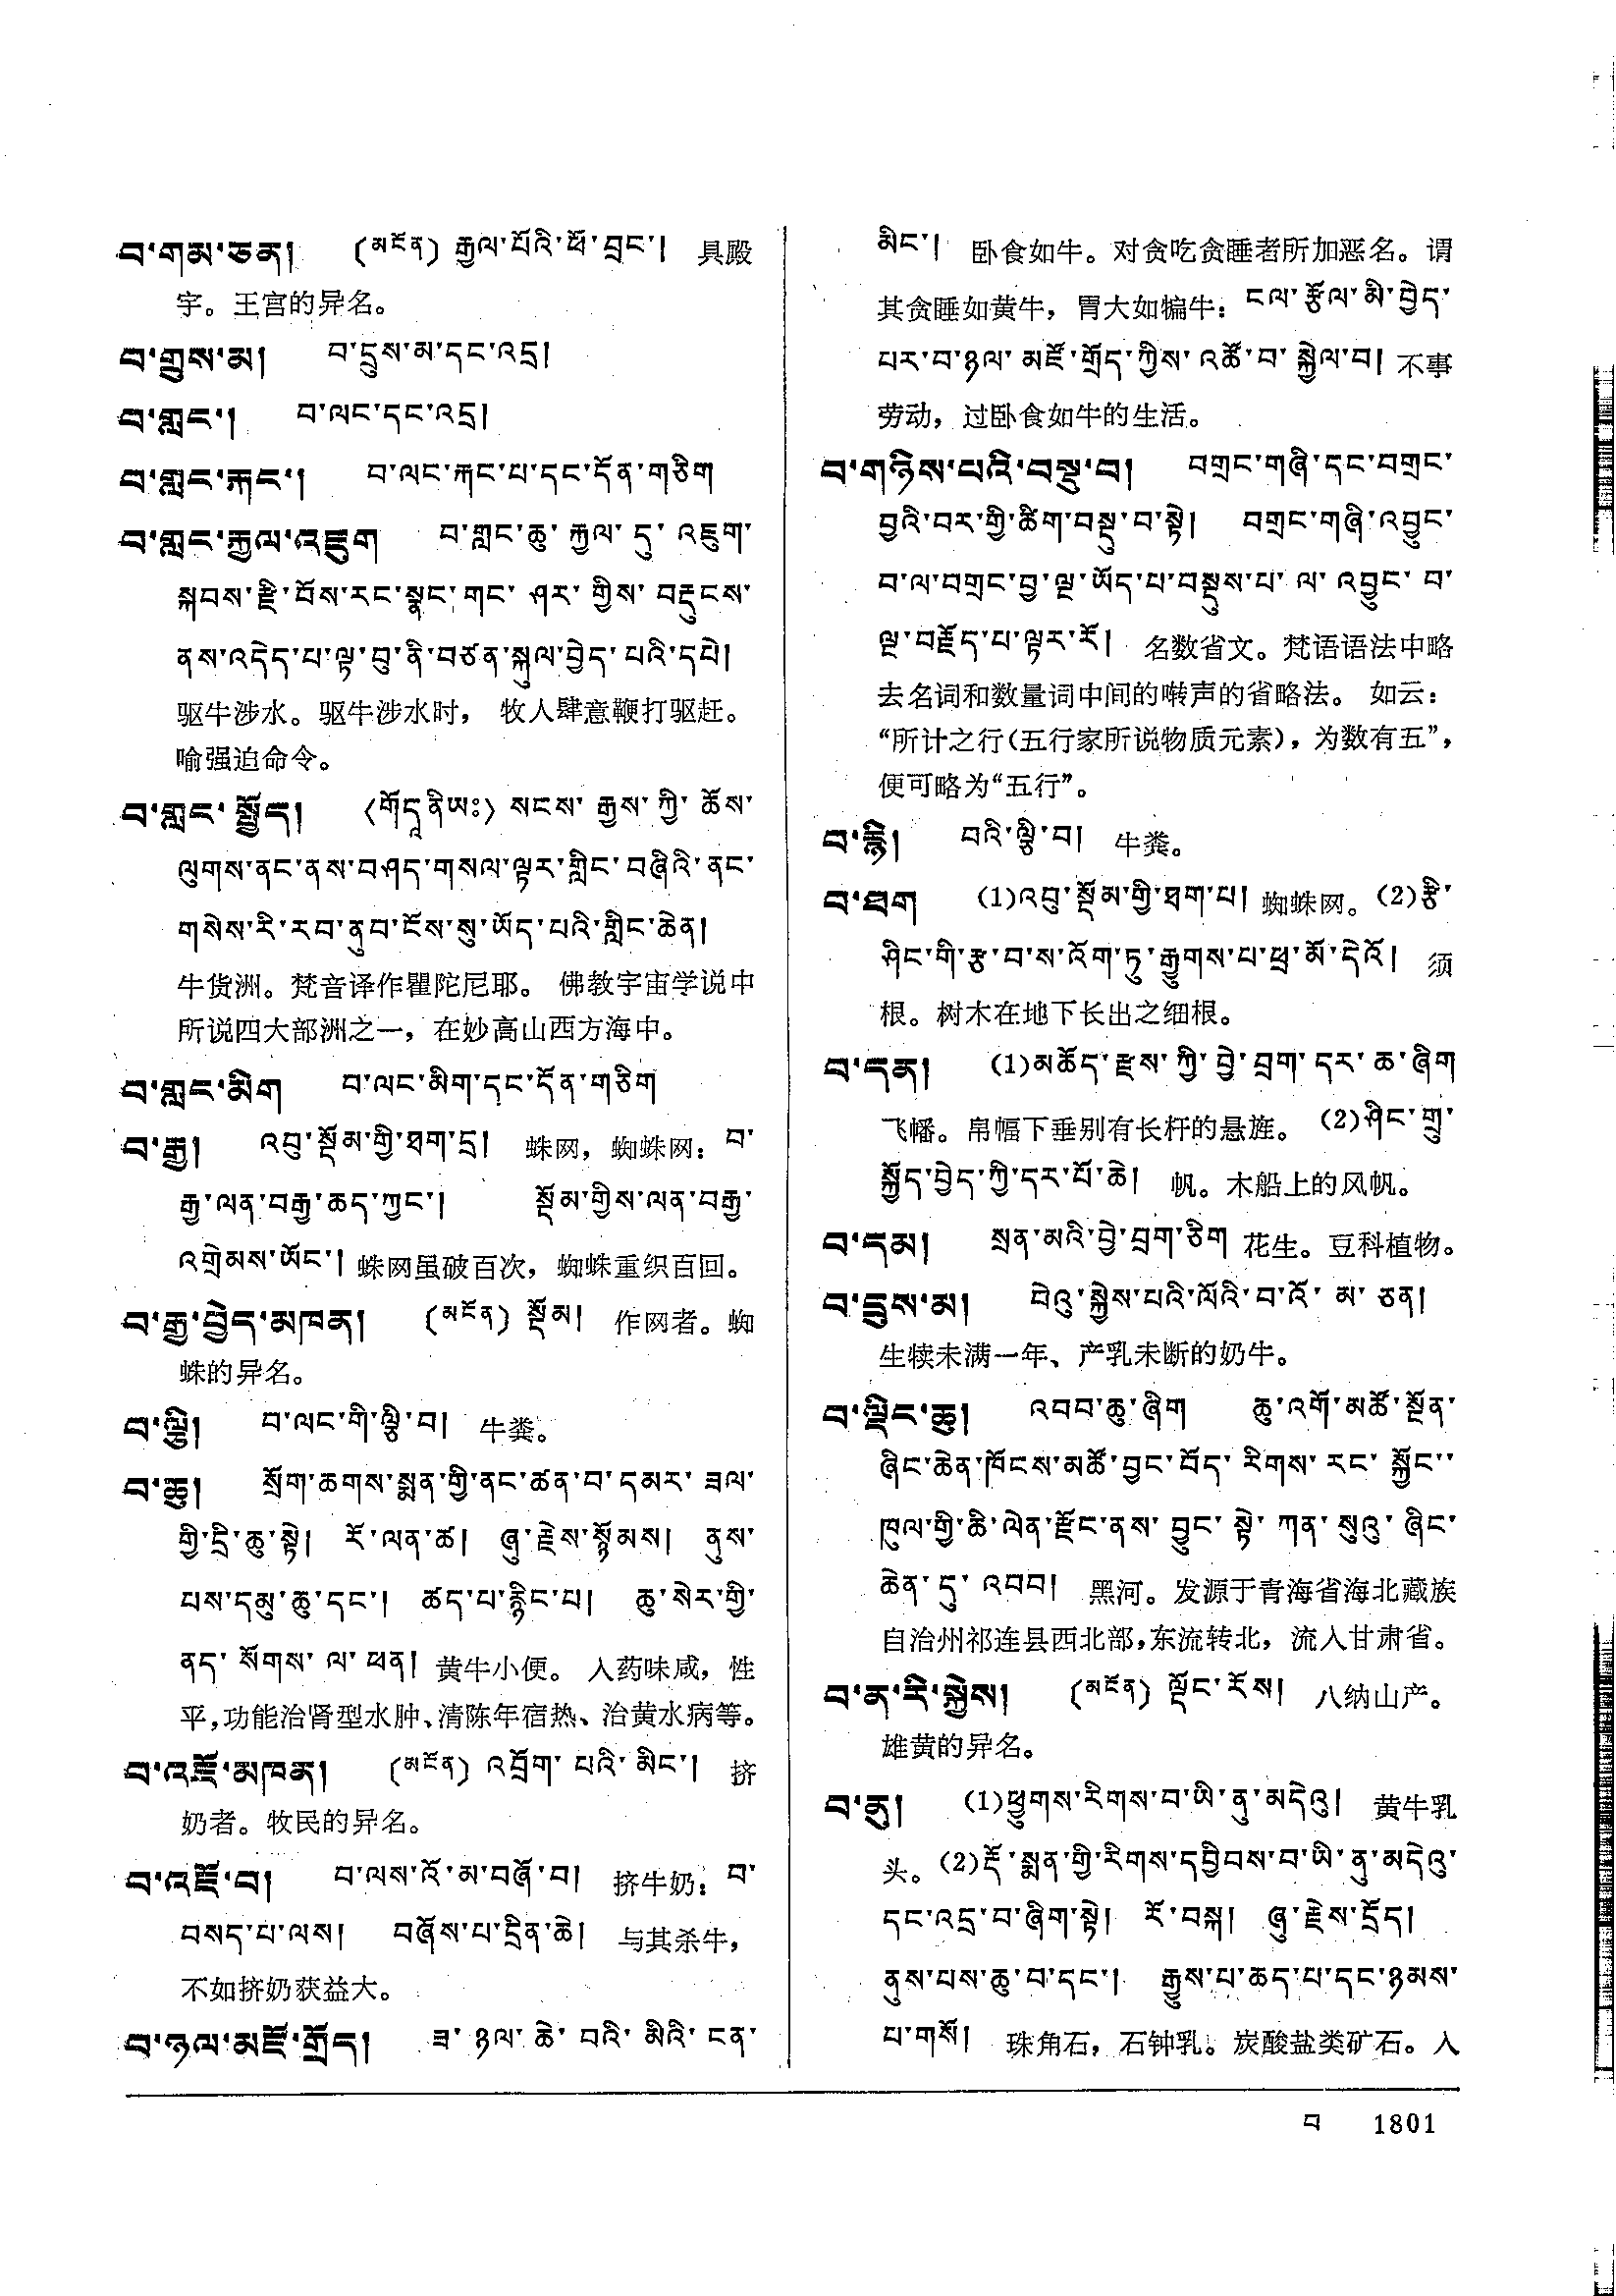 བ་གམ་ཅན། (མངོན) རྒྱལ་པོའི་ཕོ་བྲང་། 具殿
宇。王宫的异名。
བ་གྲུས་མ། བ་དྲུས་མ་དང་འདྲ།
བ་གླང་། བ་ལང་དང་འདྲ།
བ་གླང་རྐང་། བ་ལང་རྐང་པ་དང་དོན་གཅིག
བ་གླང་རྐྱལ་འཇུག བ་གླང་ཆུ་རྐྱལ་དུ་འཇུག་
སྐབས་རྫི་བོས་རང་སྣང་གང་ཤར་གྱིས་བརྡུངས་
ནས་འདེད་པ་ལྟ་བུ་ནི་བཙན་སྐུལ་བྱེད་པའི་དཔེ།
驱牛涉水。驱牛涉水时， 牧人肆意鞭打驱赶。
喻强迫命令。
བ་གླང་སྤྱོད། 〈གོདཱནིཡཿ〉 སངས་རྒྱས་ཀྱི་ཆོས་
ལུགས་ནང་ནས་བཤད་གསལ་ལྟར་གླིང་བཞིའི་ནང་
གསེས་རི་རབ་ནུབ་ངོས་སུ་ཡོད་པའི་གླིང་ཆེན།
牛货洲。梵音译作瞿陀尼耶。 佛教宇宙学说中
所说四大部洲之一，在妙高山西方海中。
བ་གླང་མིག བ་ལང་མིག་དང་དོན་གཅིག
བ་རྒྱ། འབུ་སྡོམ་གྱི་ཐག་དྲ། 蛛网，蜘蛛网：བ་
རྒྱ་ལན་བརྒྱ་ཆད་ཀྱང་། སྡོམ་གྱིས་ལན་བརྒྱ་
འགྲེམས་ཡོང་། 蛛网虽破百次，蜘蛛重织百回。
བ་རྒྱ་བྱེད་མཁན། (མངོན) སྡོམ། 作网者。蜘
蛛的异名。
བ་ལྕི། བ་ལང་གི་ལྕི་བ། 牛粪。
བ་ཆུ། སྲོག་ཆགས་སྨན་གྱི་ནང་ཚན་བ་དམར་ཟལ་
གྱི་དྲི་ཆུ་སྟེ། རོ་ལན་ཚ། ཞུ་རྗེས་སྙོམས། ནུས་
པས་དམུ་ཆུ་དང་། ཚད་པ་རྙིང་པ། ཆུ་སེར་གྱི་
ནད་སོགས་ལ་ཕན། 黄牛小便。 入药味咸，性
平，功能治肾型水肿、清陈年宿热、治黄水病等。
བ་འཇོ་མཁན། (མངོན) འབྲོག་པའི་མིང་། 挤
奶者。牧民的异名。
བ་འཇོ་བ། བ་ལས་འོ་མ་བཞོ་བ། 挤牛奶：བ་
བསད་པ་ལས། བཞོས་པ་དྲིན་ཆེ། 与其杀牛，
不如挤奶获益大。
བ་ཉལ་མཛོ་གྲོད། ཟ་ཉལ་ཆེ་བའི་མིའི་ངན་
མིང་། 卧食如牛。对贪吃贪睡者所加恶名。谓
其贪睡如黄牛，胃大如犏牛：ངལ་རྩོལ་མི་བྱེད་
པར་བ་ཉལ་མཛོ་གྲོད་ཀྱིས་འཚོ་བ་སྐྱེལ་བ། 不事
劳动，过卧食如牛的生活。
བ་གཉིས་པའི་བསྡུ་བ། བགྲང་གཞི་དང་བགྲང་
བྱའི་བར་གྱི་ཚིག་བསྡུ་བ་སྟེ། བགྲང་གཞི་འབྱུང་
བ་ལ་བགྲང་བྱ་ལྔ་ཡོད་པ་བསྡུས་པ་ལ་འབྱུང་བ་
ལྔ་བརྗོད་པ་ལྟར་རོ། 名数省文。梵语语法中略
去名词和数量词中间的啭声的省略法。 如云：
“所计之行（五行家所说物质元素），为数有五”，
便可略为“五行”。
བ་རྙི། བའི་ལྕི་བ། 牛粪。
བ་ཐག (1)འབུ་སྡོམ་གྱི་ཐག་པ། 蜘蛛网。(2)རྩི་
ཤིང་གི་རྩ་བ་ས་འོག་ཏུ་རྒྱུགས་པ་ཕྲ་མོ་དེའོ། 须
根。树木在地下长出之细根。
བ་དན། (1)མཆོད་རྫས་ཀྱི་བྱེ་བྲག་དར་ཆ་ཞིག
飞幡。帛幅下垂别有长杆的悬旌。 (2)ཤིང་གྲུ་
སྐྱོད་བྱེད་ཀྱི་དར་པོ་ཆེ། 帆。木船上的风帆。
བ་དམ། སྲན་མའི་བྱེ་བྲག་ཅིག 花生。豆科植物。
བ་དྲུས་མ། བེའུ་སྐྱེས་པའི་ལོའི་བ་འོ་མ་ཅན།
生犊未满一年、产乳未断的奶牛。
བ་ལྡིང་ཆུ། འབབ་ཆུ་ཞིག ཆུ་འགོ་མཚོ་སྔོན་
ཞིང་ཆེན་ཁོངས་མཚོ་བྱང་བོད་རིགས་རང་སྐྱོང་
ཁུལ་གྱི་ཆི་ལེན་རྫོང་ནས་བྱུང་སྟེ་ཀན་སུའུ་ཞིང་
ཆེན་དུ་འབབ། 黑河。发源于青海省海北藏族
自治州祁连县西北部，东流转北，流入甘肃省。
བ་ན་རི་སྐྱེས། (མངོན) ལྡོང་རོས། 八纳山产。
雄黄的异名。
བ་ནུ། (1)ཕྱུགས་རིགས་བ་ཡི་ནུ་མདེའུ། 黄牛乳
头。(2)རྡོ་སྨན་གྱི་རིགས་དབྱིབས་བ་ཡི་ནུ་མདེའུ་
དང་འདྲ་བ་ཞིག་སྟེ། རོ་བསྐ། ཞུ་རྗེས་དྲོད།
ནུས་པས་ཆུ་བ་དང་། རྒྱུས་པ་ཆད་པ་དང་ཉམས་
པ་གསོ། 珠角石，石钟乳。炭酸盐类矿石。入
བ 1801